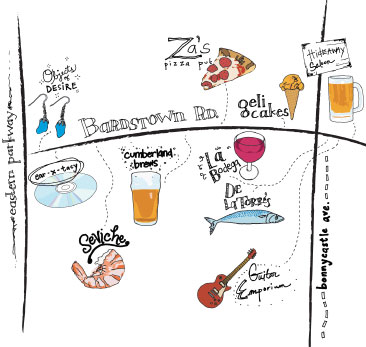 Za's
pizza pub
Objects
of
DESIRE
HIDEAWAY
Saloon
geli
cakes
BARDSTOWN RD.
eastern parkway
ear-x-tacy
cumberland
brews
La
Bodega
De
La Torre's
Seviche
Guitar
Emporium
bonnycastle ave.